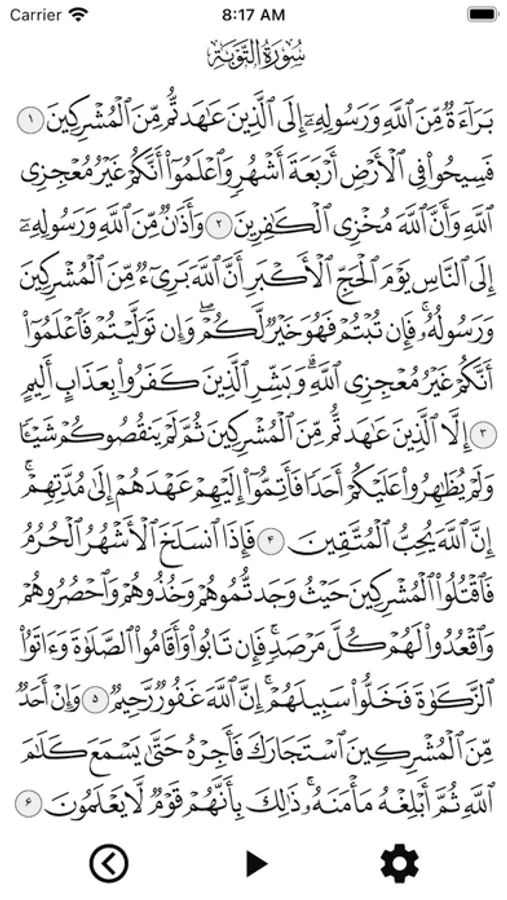 Carrier 8:17 AM
سُورَةُ التَّوْبَةِ
بَرَآءَةٌ مِّنَ ٱللَّهِ وَرَسُولِهِۦٓ إِلَى ٱلَّذِينَ عَٰهَدتُّم مِّنَ ٱلْمُشْرِكِينَ ١
فَسِيحُوا۟ فِى ٱلْأَرْضِ أَرْبَعَةَ أَشْهُرٍ وَٱعْلَمُوٓا۟ أَنَّكُمْ غَيْرُ مُعْجِزِى
ٱللَّهِ وَأَنَّ ٱللَّهَ مُخْزِى ٱلْكَٰفِرِينَ ٢ وَأَذَٰنٌ مِّنَ ٱللَّهِ وَرَسُولِهِۦٓ
إِلَى ٱلنَّاسِ يَوْمَ ٱلْحَجِّ ٱلْأَكْبَرِ أَنَّ ٱللَّهَ بَرِىٓءٌ مِّنَ ٱلْمُشْرِكِينَ
وَرَسُولُهُۥ ۚ فَإِن تُبْتُمْ فَهُوَ خَيْرٌ لَّكُمْ ۖ وَإِن تَوَلَّيْتُمْ فَٱعْلَمُوٓا۟
أَنَّكُمْ غَيْرُ مُعْجِزِى ٱللَّهِ ۗ وَبَشِّرِ ٱلَّذِينَ كَفَرُوا۟ بِعَذَابٍ أَلِيمٍ
٣ إِلَّا ٱلَّذِينَ عَٰهَدتُّم مِّنَ ٱلْمُشْرِكِينَ ثُمَّ لَمْ يَنقُصُوكُمْ شَيْـًٔا
وَلَمْ يُظَٰهِرُوا۟ عَلَيْكُمْ أَحَدًا فَأَتِمُّوٓا۟ إِلَيْهِمْ عَهْدَهُمْ إِلَىٰ مُدَّتِهِمْ ۚ
إِنَّ ٱللَّهَ يُحِبُّ ٱلْمُتَّقِينَ ۴ فَإِذَا ٱنسَلَخَ ٱلْأَشْهُرُ ٱلْحُرُمُ
فَٱقْتُلُوا۟ ٱلْمُشْرِكِينَ حَيْثُ وَجَدتُّمُوهُمْ وَخُذُوهُمْ وَٱحْصُرُوهُمْ
وَٱقْعُدُوا۟ لَهُمْ كُلَّ مَرْصَدٍ ۚ فَإِن تَابُوا۟ وَأَقَامُوا۟ ٱلصَّلَوٰةَ وَءَاتَوُا۟
ٱلزَّكَوٰةَ فَخَلُّوا۟ سَبِيلَهُمْ ۚ إِنَّ ٱللَّهَ غَفُورٌ رَّحِيمٌ ۵ وَإِنْ أَحَدٌ
مِّنَ ٱلْمُشْرِكِينَ ٱسْتَجَارَكَ فَأَجِرْهُ حَتَّىٰ يَسْمَعَ كَلَٰمَ
ٱللَّهِ ثُمَّ أَبْلِغْهُ مَأْمَنَهُۥ ۚ ذَٰلِكَ بِأَنَّهُمْ قَوْمٌ لَّا يَعْلَمُونَ ۶